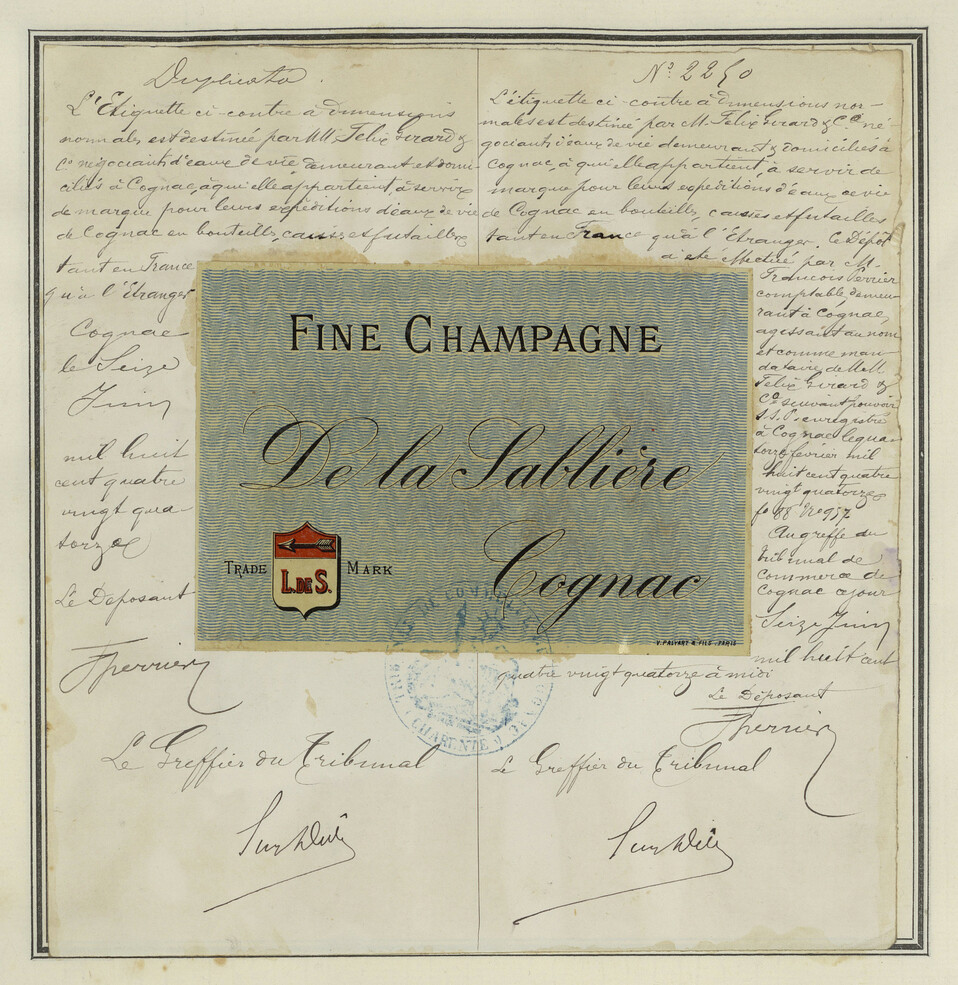 Duplicata.
L'Etiquette ci-contre à dimensions
normales est destinée par MM. Felix Girard &
Cie négociants d'eaux de vie, demeurant et domi-
ciliés à Cognac, à qui elle appartient, à servir
de marque pour leurs expéditions d'eaux de vie
de Cognac en bouteilles, caisses et futailles
tant en France
qu'à l'Etranger
Cognac
le Seize
Juin
mil huit
cent quatre
vingt qua-
torze
Le Déposant
Fperrier
Le Greffier du Tribunal
No 2250
L'étiquette ci-contre à dimensions nor-
males est destinée par M. Felix Girard & Cie né
gociants d'eaux de vie demeurant & domiciliés à
Cognac, à qui elle appartient, à servir de
marque pour leurs expéditions d'eaux de vie
de Cognac en bouteilles, caisses et futailles
tant en France qu'à l'Etranger. Ce Dépôt
a été effectué par M.
Francois Perrier
comptable demeu-
rant à Cognac,
agissant au nom
et comme man
dataire de MM
Felix Girard &
Cie suivant pouvoir
S.S.P. enregistré
à Cognac le qua
torze février mil
huit cent quatre
vingt quatorze
fo 88
Au greffe du
tribunal de
Commerce de
Cognac ce jour
Seize Juin
mil huit cent
quatre vingt quatorze à midi
Le Déposant
Fperrier
Le Greffier du Tribunal
FINE CHAMPAGNE
De la Sablière
Cognac
TRADE MARK
L. DE S.
V. PALYART & FILS - PARIS
TRIBUNAL DE COMMERCE DE COGNAC
(CHARENTE)